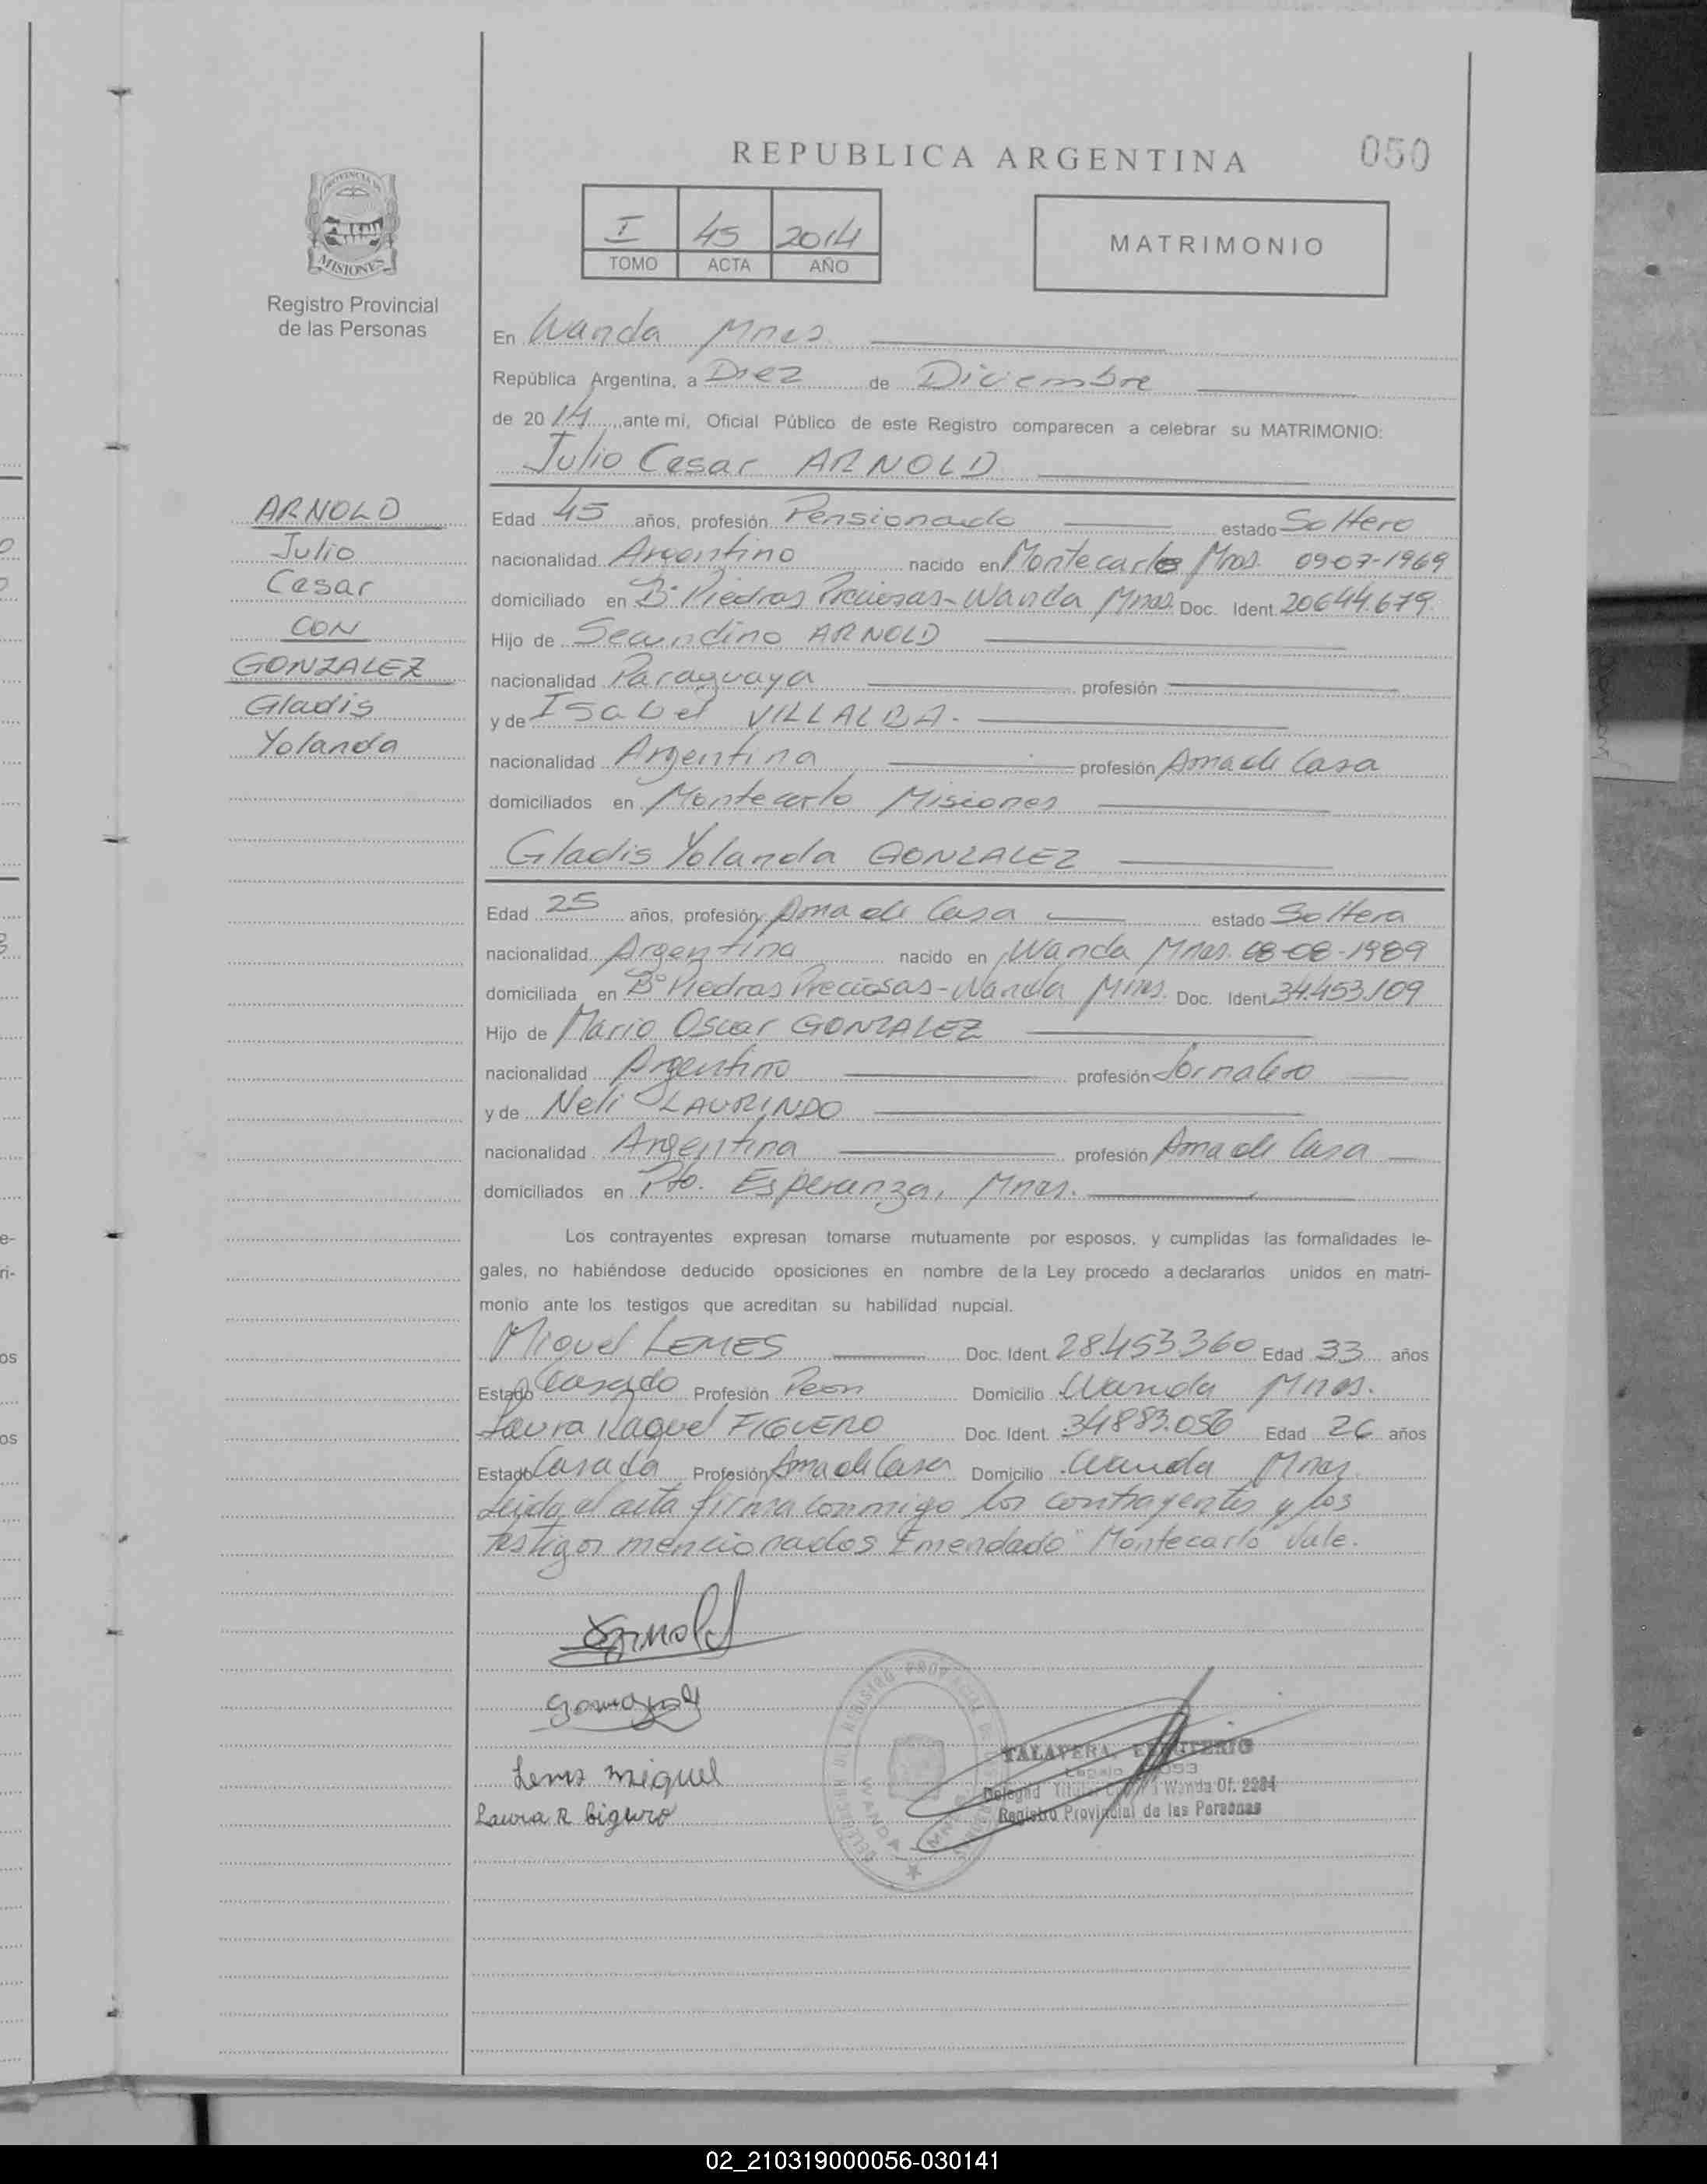 REPUBLICA ARGENTINA
050
PROVINCIA DE
MISIONES
Registro Provincial
de las Personas
I 45 2014
TOMO ACTA AÑO
MATRIMONIO
En Wanda Mnes.
República Argentina, a Diez de Diciembre
de 2014 ante mi, Oficial Público de este Registro comparecen a celebrar su MATRIMONIO:
Julio Cesar ARNOLD
ARNOLD
Julio
Cesar
CON
GONZALEZ
Gladis
Yolanda
Edad 45 años, profesión Pensionado estado Soltero
nacionalidad Argentino nacido en Montecarlo Mnes. 09-07-1969
domiciliado en B° Piedras Preciosas-Wanda Mnes. Doc. Ident. 20644.679
Hijo de Secundino ARNOLD
nacionalidad Paraguaya profesión
y de Isabel VILLALBA.
nacionalidad Argentina profesión Ama de Casa
domiciliados en Montecarlo Misiones
Gladis Yolanda GONZALEZ
Edad 25 años, profesión Ama de Casa estado Soltera
nacionalidad Argentina nacido en Wanda Mnes. 08-08-1989
domiciliada en B° Piedras Preciosas-Wanda Mnes. Doc. Ident. 34.453.109
Hijo de Mario Oscar GONZALEZ
nacionalidad Argentino profesión Jornalero
y de Neli LAURINDO
nacionalidad Argentina profesión Ama de Casa
domiciliados en Pto. Esperanza, Mnes.
Los contrayentes expresan tomarse mutuamente por esposos, y cumplidas las formalidades le-
gales, no habiéndose deducido oposiciones en nombre de la Ley procedo a declararlos unidos en matri-
monio ante los testigos que acreditan su habilidad nupcial.
Miguel LEMES Doc. Ident. 28.453.360 Edad 33 años
Estado Casado Profesión Peon Domicilio Wanda Mnes.
Laura Raquel FIGUERO Doc. Ident. 34883.056 Edad 26 años
Estado Casada Profesión Ama de Casa Domicilio Wanda Mnes.
Leida el acta firma conmigo los contrayentes y los
testigos mencionados Emendado "Montecarlo" Vale.
Arnold
Lems miguel
Laura R
TALAVERA, ELEUTERIO
Wanda Of. 2284
Registro Provincial de las Personas
WANDA
02_210319000056-030141